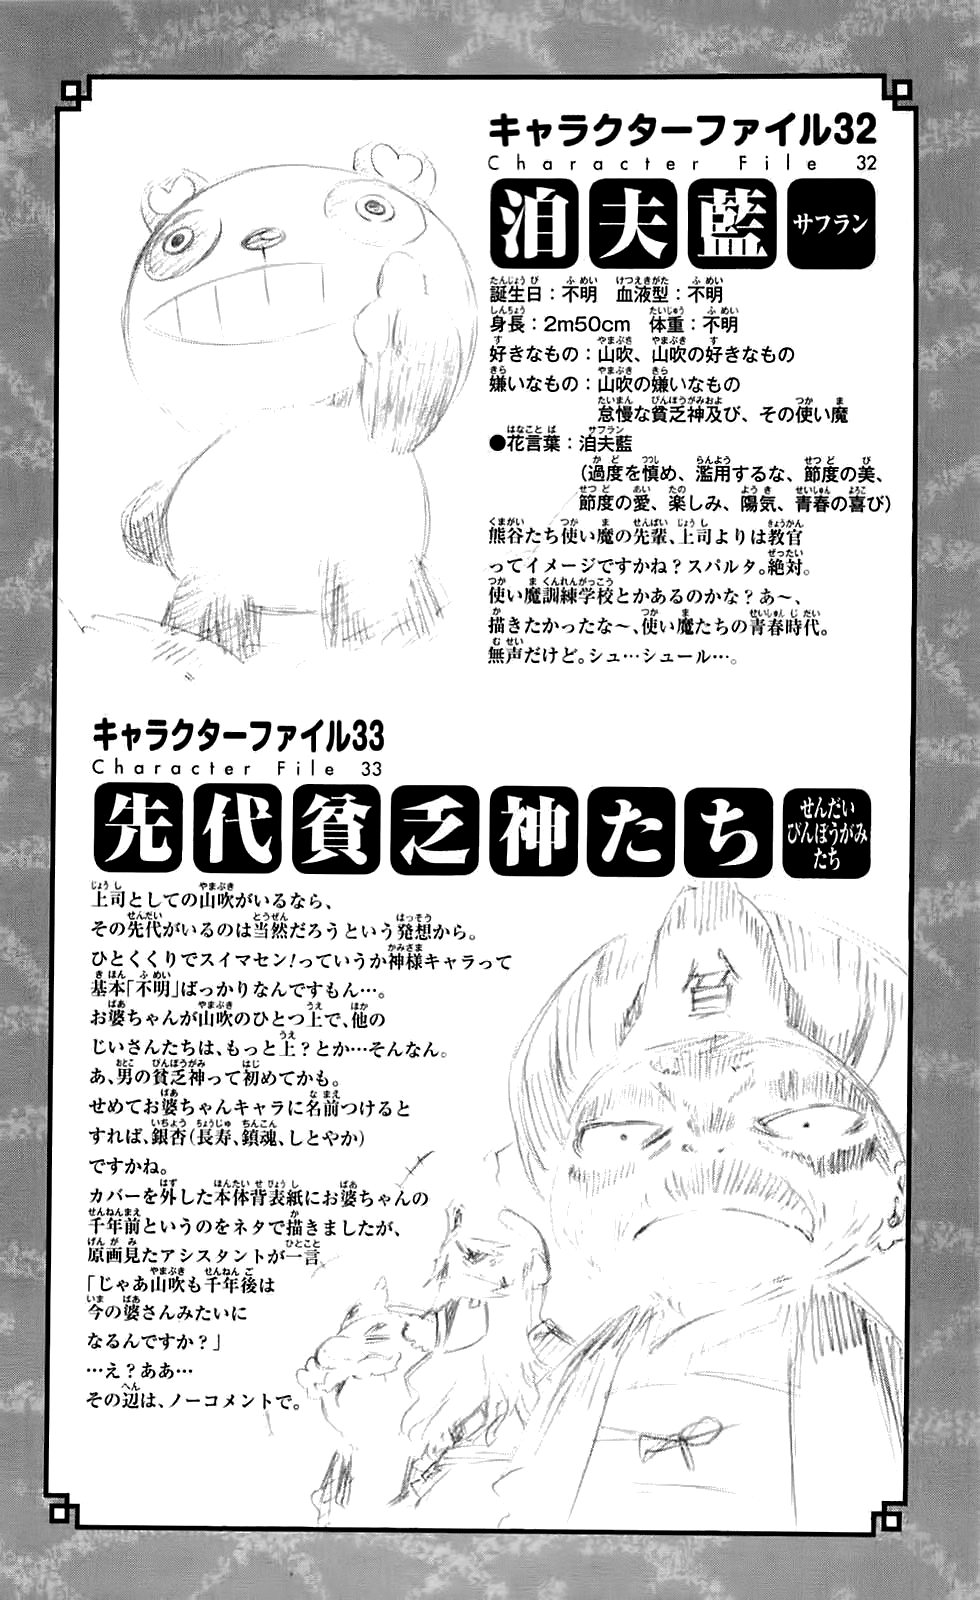 キャラクターファイル32
Character File 32
泊夫藍 サフラン
誕生日：不明　血液型：不明
身長：2m50cm　体重：不明
好きなもの：山吹、山吹の好きなもの
嫌いなもの：山吹の嫌いなもの
怠慢な貧乏神及び、その使い魔
●花言葉：泊夫藍
（過度を慎め、濫用するな、節度の美、
節度の愛、楽しみ、陽気、青春の喜び）
熊谷たち使い魔の先輩、上司よりは教官
ってイメージですかね？スパルタ。絶対。
使い魔訓練学校とかあるのかな？あ～、
描きたかったな～、使い魔たちの青春時代。
無声だけど。シュ…シュール…。
キャラクターファイル33
Character File 33
先代貧乏神たち せんだいびんぼうがみたち
上司としての山吹がいるなら、
その先代がいるのは当然だろうという発想から。
ひとくくりでスイマセン！っていうか神様キャラって
基本「不明」ばっかりなんですもん…。
お婆ちゃんが山吹のひとつ上で、他の
じいさんたちは、もっと上？とか…そんなん。
あ、男の貧乏神って初めてかも。
せめてお婆ちゃんキャラに名前つけると
すれば、銀杏（長寿、鎮魂、しとやか）
ですかね。
カバーを外した本体背表紙にお婆ちゃんの
千年前というのをネタで描きましたが、
原画見たアシスタントが一言
「じゃあ山吹も千年後は
今の婆さんみたいに
なるんですか？」
…え？ああ…
その辺は、ノーコメントで。
貧